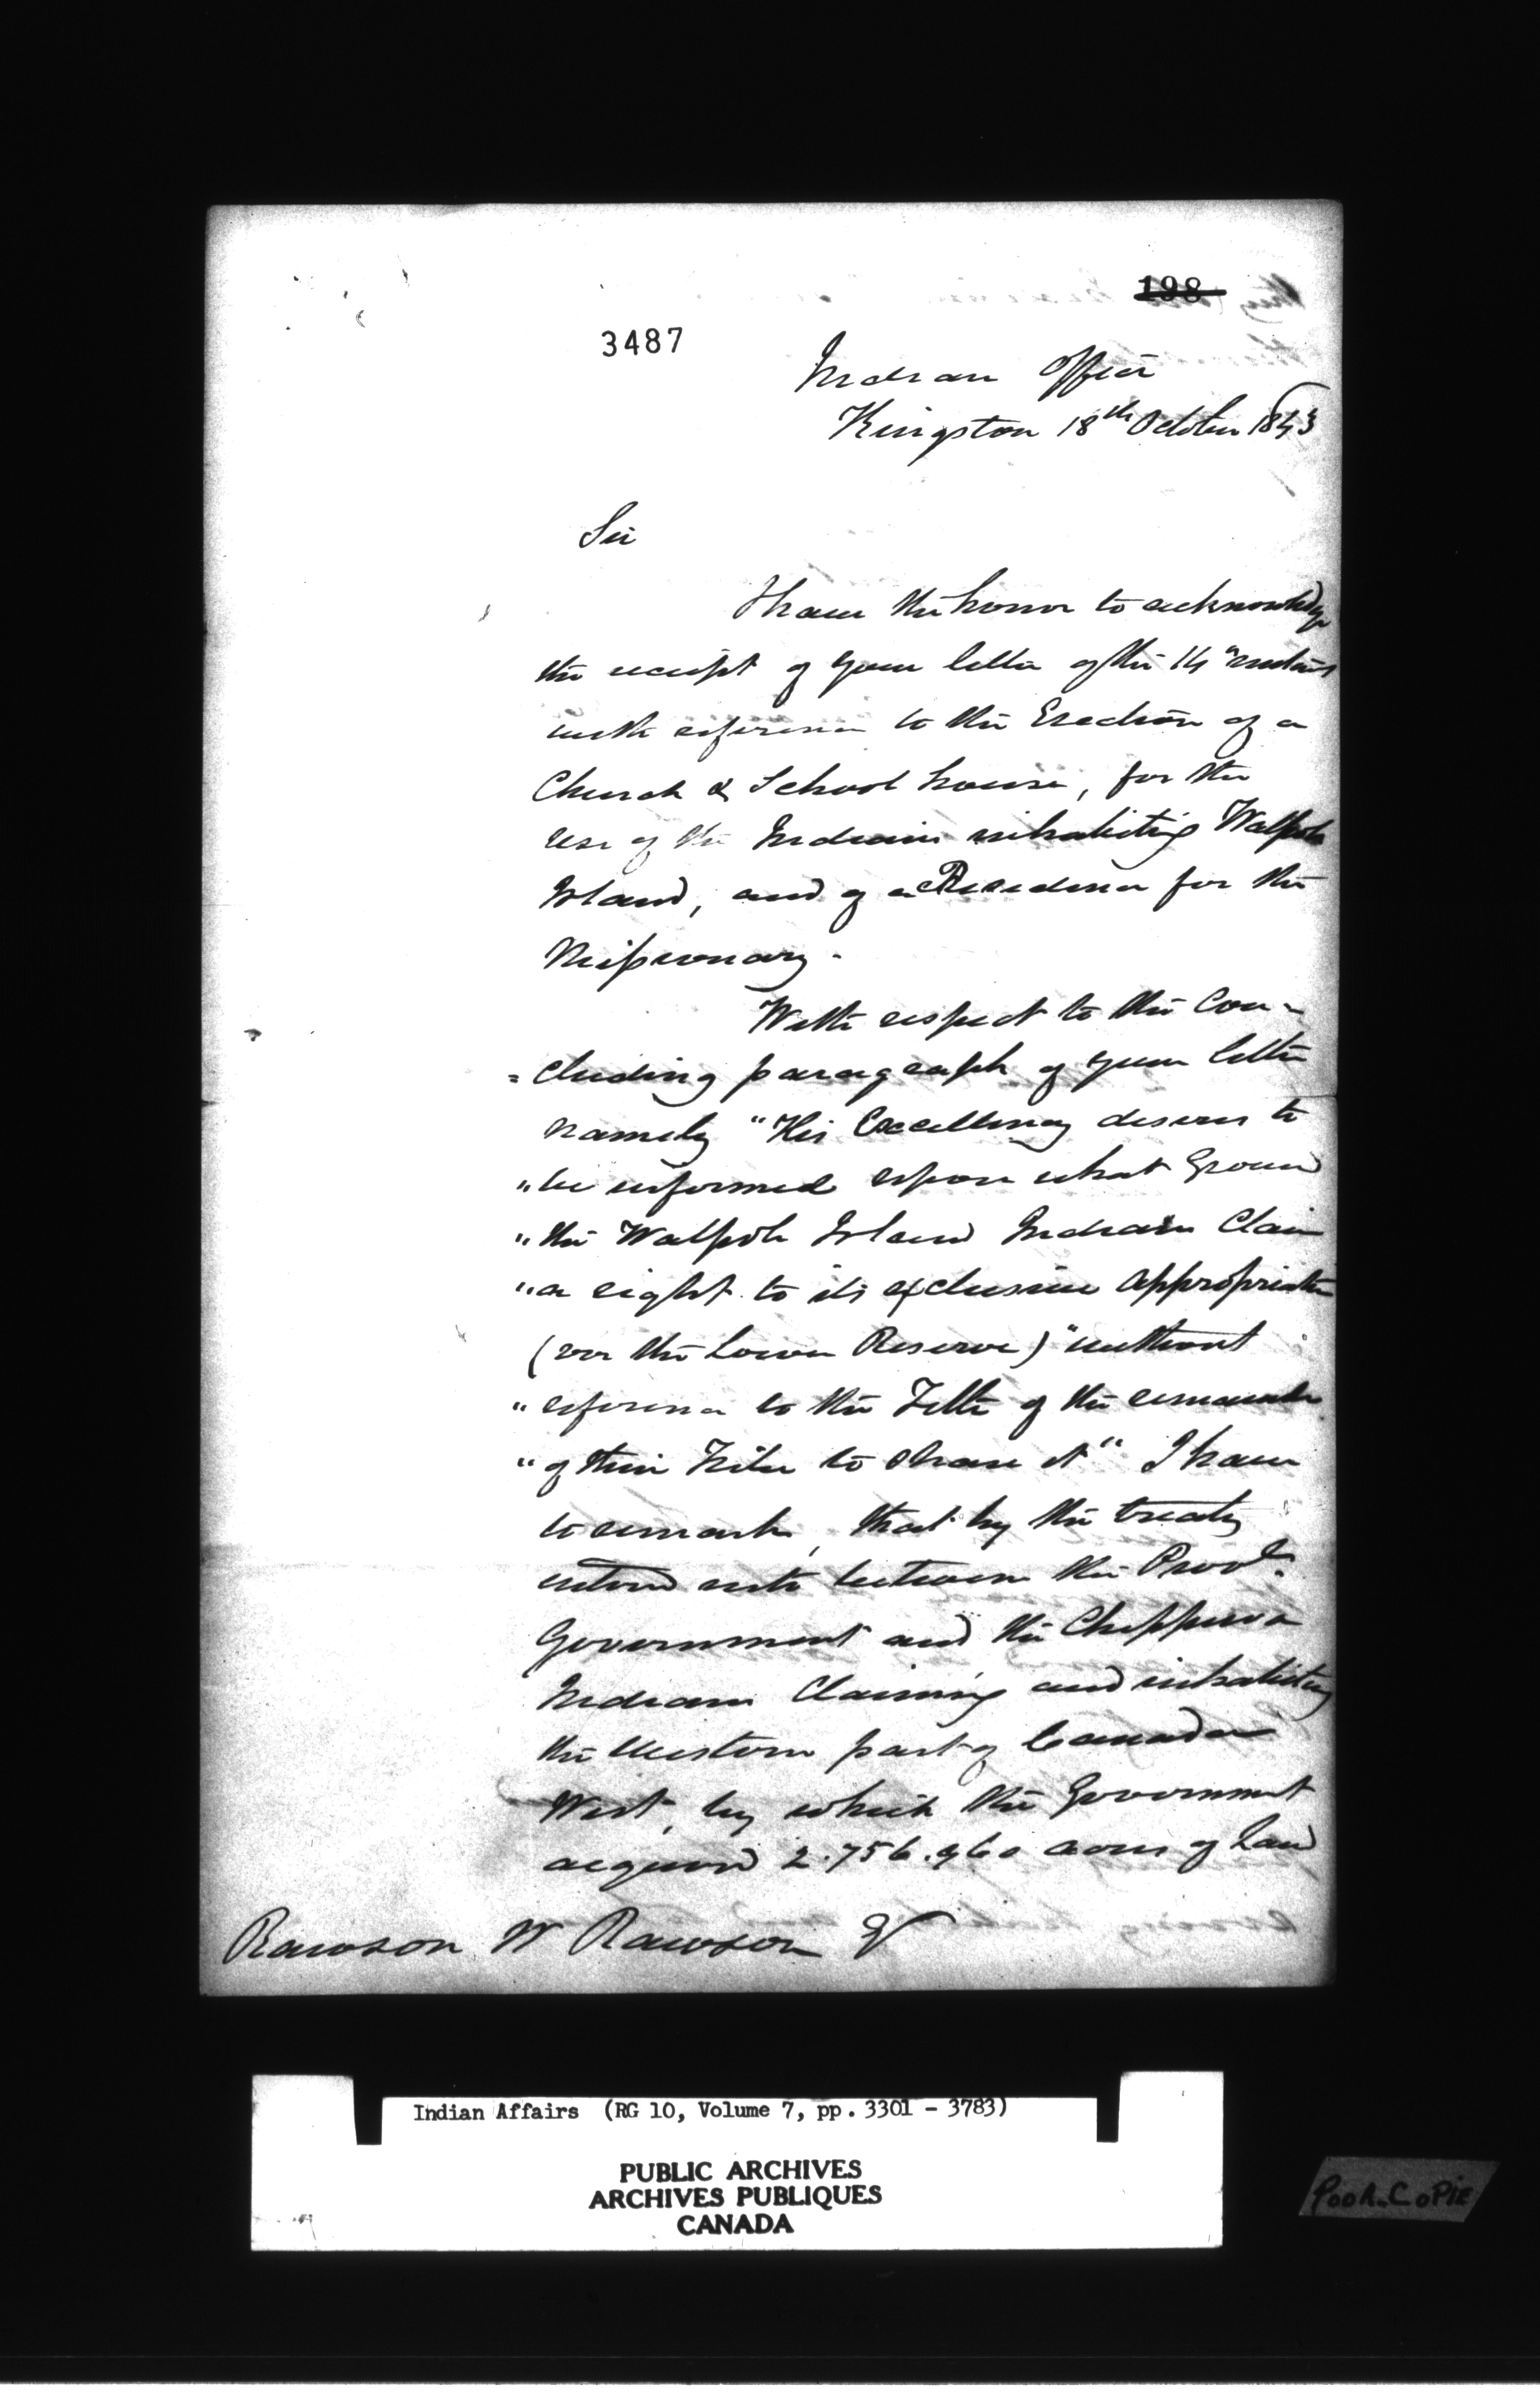 198
3487
Indian Office
Kingston 18th October 1843
Sir
I have the honor to acknowledge
the receipt of your letter of the 14th instant
with reference to the Erection of a
Church & School house, for the
use of the Indians inhabiting Walpole
Island, and of a Residence for the
Missionary.
With respect to the Con-
=cluding paragraph of your letter
namely "His Excellency desires to
"be informed upon what Ground
"the Walpole Island Indians Claim
"a right to its exclusive appropriation
( the Lower Reserve) "without
"reference to the Title of the remainder
"of their Tribe to share it" I have
to remark, that by the treaty
entered into between the Provl.
Government and the Chippewa
Indians Claiming and inhabiting
the Western part of Canada
West, by which the Government
acquired 2.756.960 acres of Land
Rawson W Rawson
Indian Affairs (RG 10, Volume 7, pp. 3301 - 3783)
PUBLIC ARCHIVES
ARCHIVES PUBLIQUES
CANADA
POOR COPIE